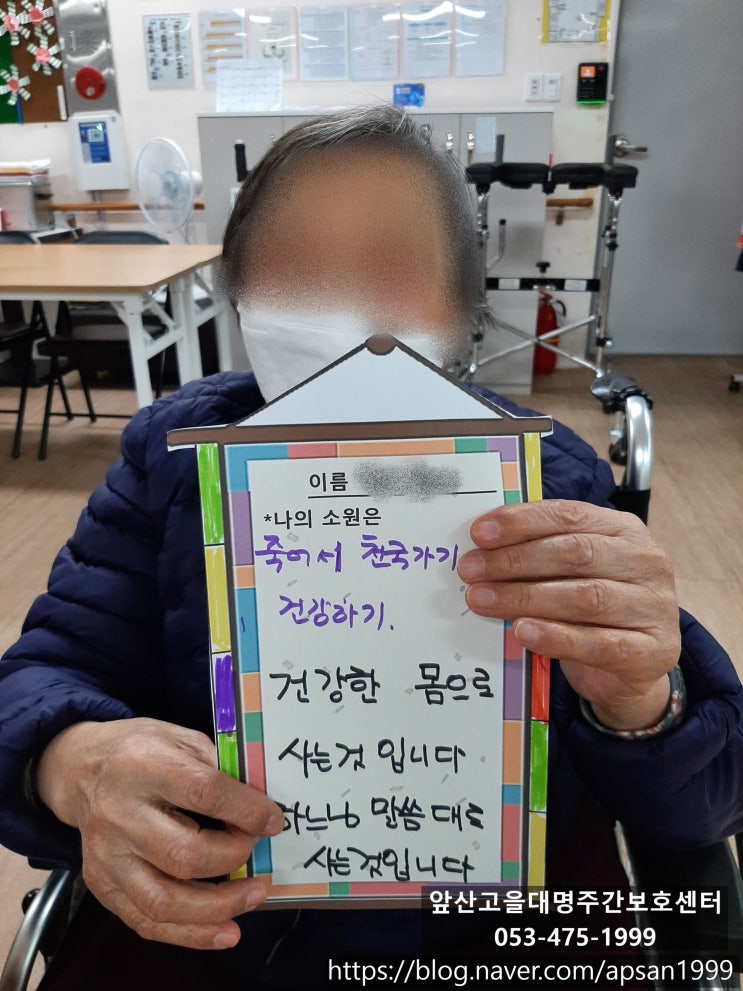 이름
*나의 소원은
죽어서 천국가기
건강하기.
건강한 몸으로
사는것 입니다
하느님 말씀대로
사는것입니다
앞산고을대명주간보호센터
053-475-1999
https://blog.naver.com/apsan1999